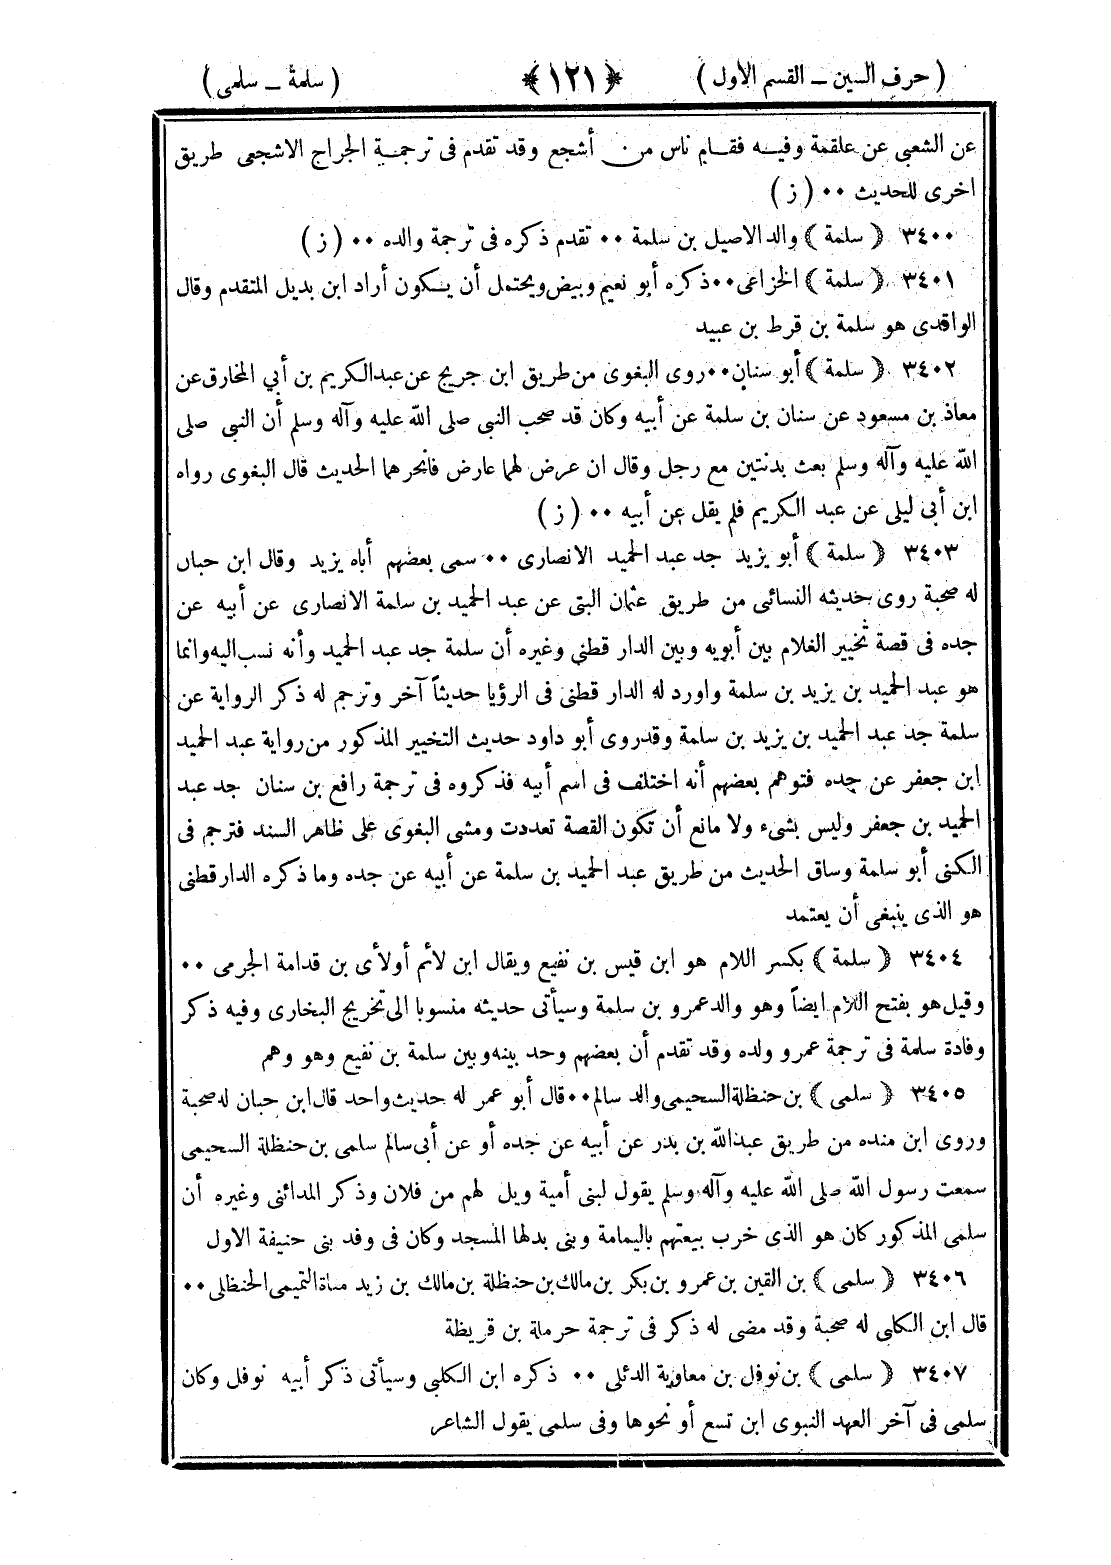 ( حرف السين ــ القسم الأول ) ﴿ ١٢١ ﴾ ( سلمة ــ سلمى )
عن الشعبى عن علقمة وفيه فقام ناس من أشجع وقد تقدم فى ترجمة الجراح الاشجعى طريق
اخرى للحديث ٠٠ ( ز )
٣٤٠٠ ﴿ سلمة ﴾ والد الاصيل بن سلمة ٠٠ تقدم ذكره فى ترجمة والده ٠٠ ( ز )
٣٤٠١ ﴿ سلمة ﴾ الخزاعى ٠٠ ذكره أبو نعيم وبيض ويحتمل أن يكون أراد ابن بديل المتقدم وقال
الواقدى هو سلمة بن قرط بن عبيد
٣٤٠٢ ﴿ سلمة ﴾ أبو سنان ٠٠ روى البغوى من طريق ابن جريج عن عبد الكريم بن أبي المخارق عن
معاذ بن مسعود عن سنان بن سلمة عن أبيه وكان قد صحب النبى صلى الله عليه وآله وسلم أن النبى صلى
الله عليه وآله وسلم بعث بدنتين مع رجل وقال ان عرض لهما عارض فانحرهما الحديث قال البغوى رواه
ابن أبى ليلى عن عبد الكريم فلم يقل عن أبيه ٠٠ ( ز )
٣٤٠٣ ﴿ سلمة ﴾ أبو يزيد جد عبد الحميد الانصارى ٠٠ سمى بعضهم أباه يزيد وقال ابن حبان
له صحبة روى حديثه النسائى من طريق عثمان البتى عن عبد الحميد بن سلمة الانصارى عن أبيه عن
جده فى قصة تخيير الغلام بين أبويه وبين الدار قطنى وغيره أن سلمة جد عبد الحميد وأنه نسب اليه وانما
هو عبد الحميد بن يزيد بن سلمة واورد له الدار قطنى فى الرؤيا حديثاً آخر وترجم له ذكر الرواية عن
سلمة جد عبد الحميد بن يزيد بن سلمة وقد روى أبو داود حديث التخيير المذكور من رواية عبد الحميد
ابن جعفر عن جده فتوهم بعضهم أنه اختلف فى اسم أبيه فذكروه فى ترجمة رافع بن سنان جد عبد
الحميد بن جعفر وليس بشىء ولا مانع أن تكون القصة تعددت ومشى البغوى على ظاهر السند فترجم فى
الكنى أبو سلمة وساق الحديث من طريق عبد الحميد بن سلمة عن أبيه عن جده وما ذكره الدار قطنى
هو الذى ينبغى أن يعتمد
٣٤٠٤ ﴿ سلمة ﴾ بكسر اللام هو ابن قيس بن نفيع ويقال ابن لائم أولأى بن قدامة الجرمى ٠٠
وقيل هو بفتح اللام ايضاً وهو والد عمرو بن سلمة وسيأتى حديثه منسوبا الى تخريج البخارى وفيه ذكر
وفادة سلمة فى ترجمة عمرو ولده وقد تقدم أن بعضهم وحد بينه وبين سلمة بن نفيع وهو وهم
٣٤٠٥ ﴿ سلمى ﴾ بن حنظلة السحيمى والد سالم ٠٠ قال أبو عمر له حديث واحد قال ابن حبان له صحبة
وروى ابن منده من طريق عبد الله بن بدر عن أبيه عن جده أو عن أبى سالم سلمى بن حنظلة السحيمى
سمعت رسول الله صلى الله عليه وآله وسلم يقول لبنى أمية ويل لهم من فلان وذكر المدائنى وغيره أن
سلمى المذكور كان هو الذى خرب بيعتهم باليمامة وبنى بدلها المسجد وكان فى وفد بنى حنيفة الاول
٣٤٠٦ ﴿ سلمى ﴾ بن القين بن عمرو بن بكر بن مالك بن حنظلة بن مالك بن زيد مناة التميمى الحنظلى ٠٠
قال ابن الكلبى له صحبة وقد مضى له ذكر فى ترجمة حرملة بن قريظة
٣٤٠٧ ﴿ سلمى ﴾ بن نوفل بن معاوية الدئلى ٠٠ ذكره ابن الكلبي وسيأتى ذكر أبيه نوفل وكان
سلمى فى آخر العهد النبوى ابن تسع أو نحوها وفى سلمى يقول الشاعر